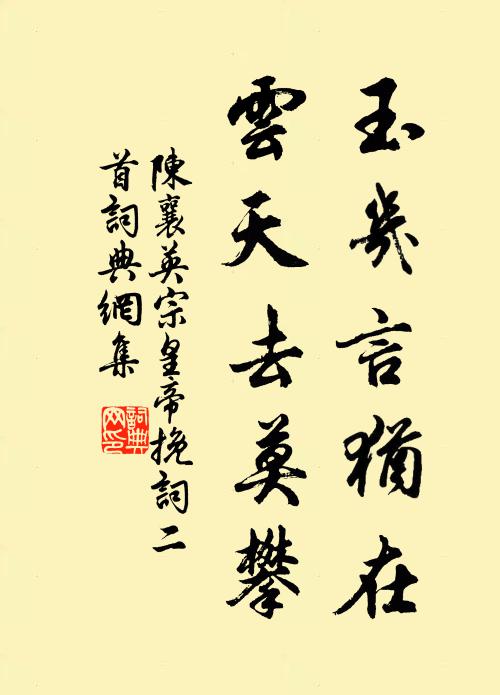 玉几言猶在
雲天去莫攀
陳襄英宗皇帝挽詞二
首詞典網集
詞典
网印